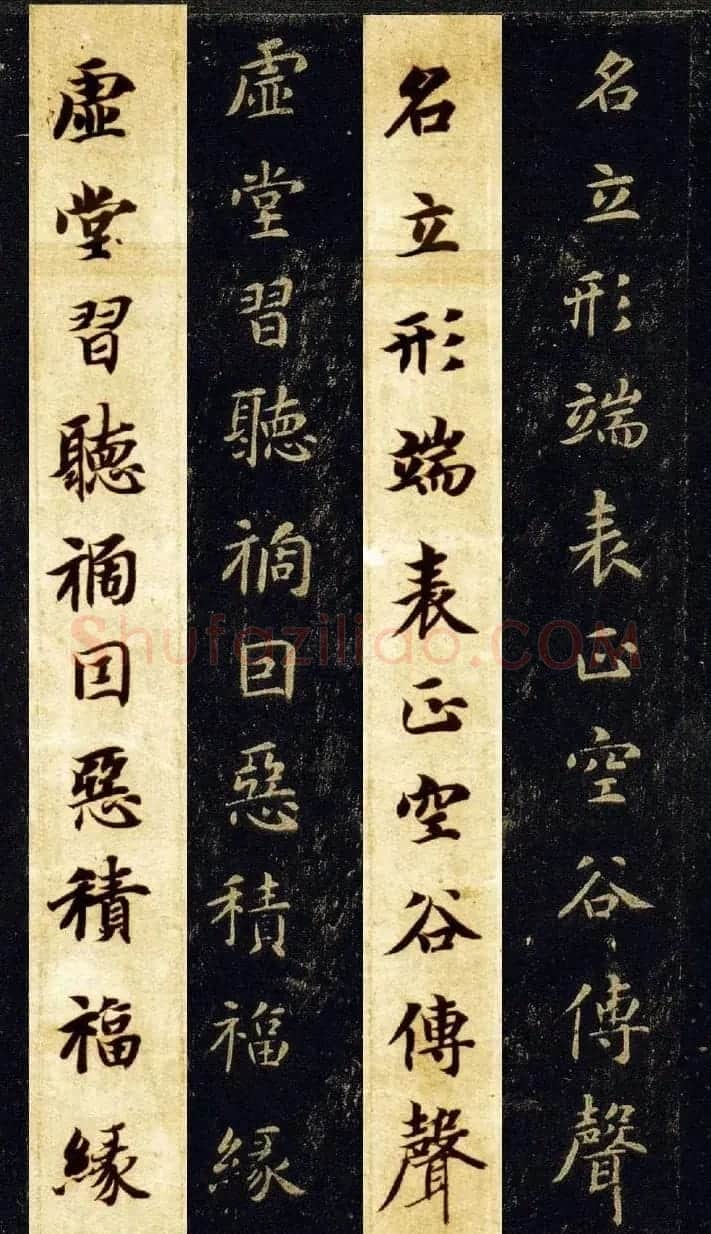 名立形端表正空谷傳聲
名立形端表正空谷傳聲
虛堂習聽禍因惡積福緣
虛堂習聽禍因惡積福緣
Shufaziliao.COM